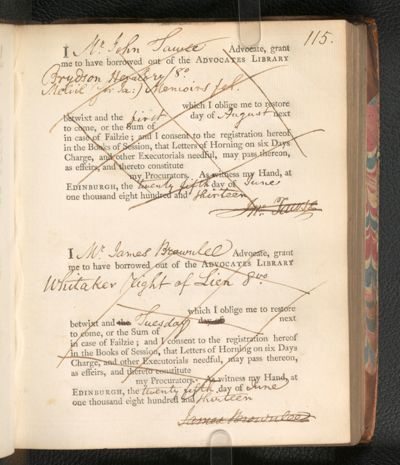 115.
I Mr. John Tawse Advocate, grant
me to have borrowed out of the ADVOCATES LIBRARY
Brydson Heraldry 8o
Melvil (Sir Ja:) Memoirs fol.
which I oblige me to restore
betwixt and the first day of August next
to come, or the Sum of
in case of Failzie; and I consent to the registration hereof
in the Books of Session, that Letters of Horning on six Days
Charge, and other Executorials needful, may pass thereon,
as effeirs, and thereto constitute
my Procurators. As witness my Hand, at
EDINBURGH, the twenty fifth day of June
one thousand eight hundred and thirteen
Jn. Tawse
I Mr. James Brownlee Advocate, grant
me to have borrowed out of the ADVOCATES LIBRARY
Whitaker Right of Lien 8vo.
which I oblige me to restore
betwixt and the Tuesday day of next
to come, or the Sum of
in case of Failzie; and I consent to the registration hereof
in the Books of Session, that Letters of Horning on six Days
Charge, and other Executorials needful, may pass thereon,
as effeirs, and thereto constitute
my Procurators. As witness my Hand, at
EDINBURGH, the twenty fifth day of June
one thousand eight hundred and thirteen
James Brownlee